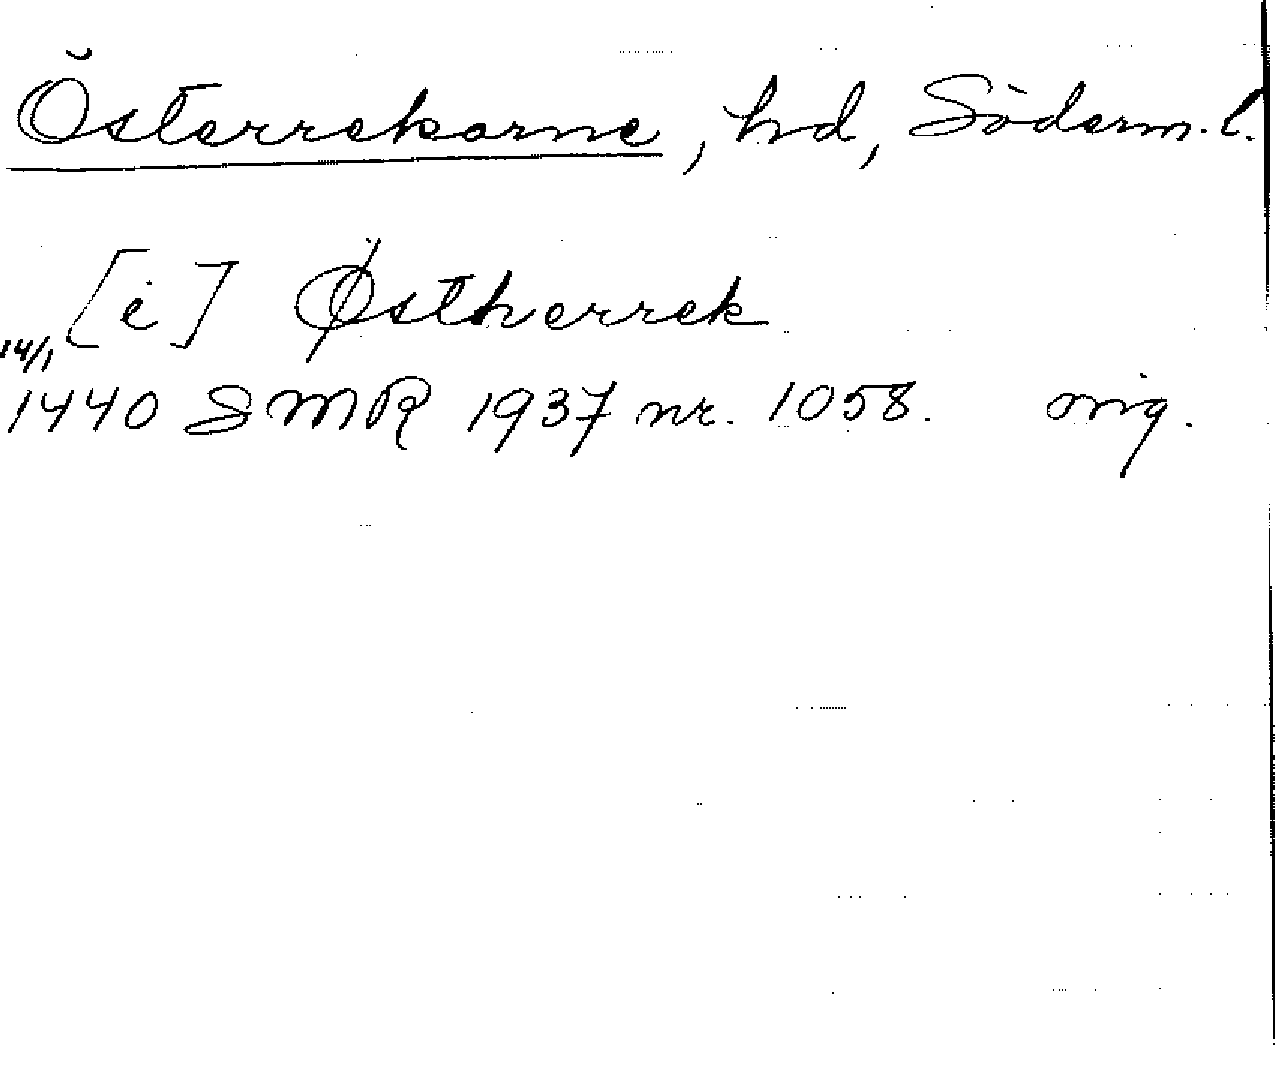 Österrekarne, hd, Söderm. l.
[i] Østherrek
14/1
1440 SMR 1937 nr. 1058. orig.